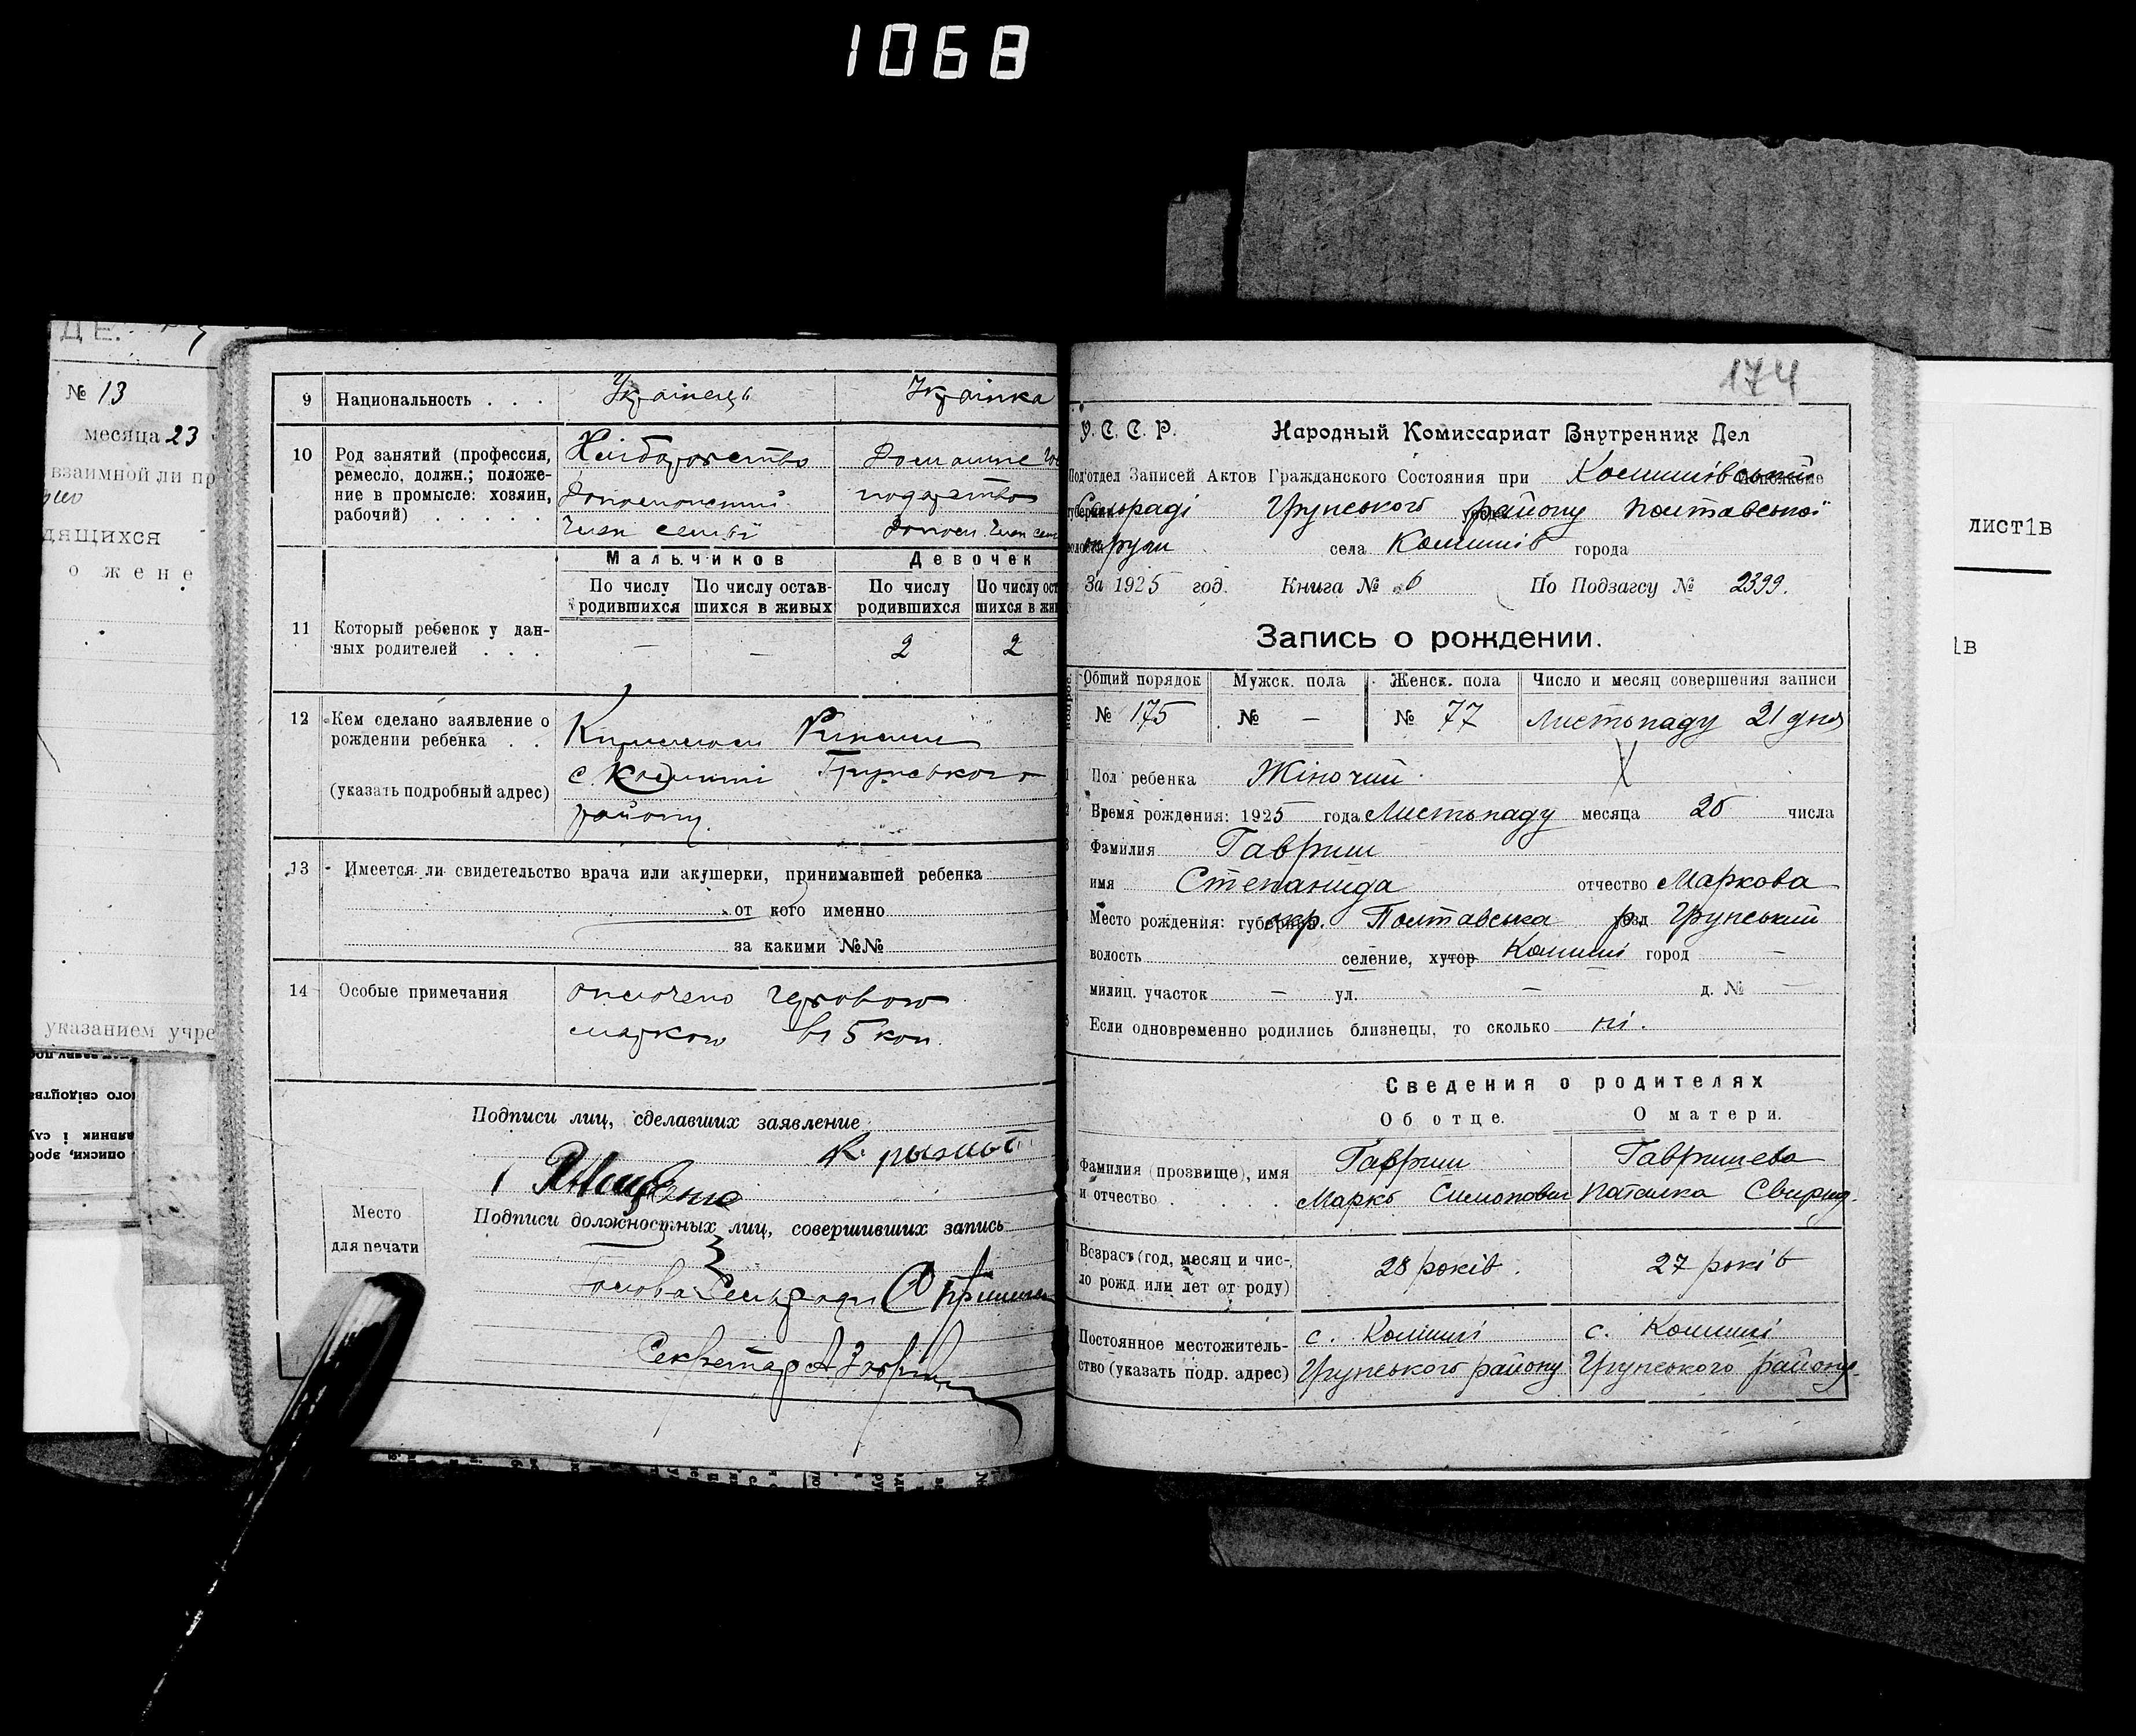 1068
ДЕ.
№ 13
месяца 23
взаимной ли пр
дящихся
о жене
указанием учре
9 Национальность . . . Українець Українка
10 Род занятий (профессия, ремесло, должн.; положение в промысле: хозяин, рабочий) . . . . .
Хліборобство Домашнє
господарство
член семьї
Мальчиков Девочек
По числу родившихся По числу оставшихся в живых По числу родившихся По числу ост шихся в жи
11 Который ребенок у данных родителей . . . — — 2 2
12 Кем сделано заявление о рождении ребенка . .
(указать подробный адрес)
с. Комиші Грунського
району.
13 Имеется ли свидетельство врача или акушерки, принимавшей ребенка
от кого именно
за какими №№
14 Особые примечания
оплочено гербовою
маркою в 5 коп.
Подписи лиц, сделавших заявление
Место
для печати
Подписи должностных лиц, совершивших запись
Голова Сельради
Секретар
174
У. С. С. Р. Народный Комиссариат Внутренних Дел
Подотдел Записей Актов Гражданского Состояния при Комишівській
Сельраді Грунського району Полтавської
округи села Комишів города
За 1925 год. Книга № 6 По Подзагсу № 2399.
Запись о рождении.
Общий порядок Мужск. пола Женск. пола Число и месяц совершения записи
№ 175 № — № 77 Листопаду 21 дня
Пол ребенка Жіночий
Время рождения: 1925 года Листопаду месяца 20 числа
Фамилия Гавриш
имя Степанида отчество Маркова
Место рождения: губерния окр. Полтавська уезд р. Грунський
волость селение, хутор Комиші город —
милиц. участок — ул. — д. № —
Если одновременно родились близнецы, то сколько ні.
Сведения о родителях
Об отце. О матери.
Фамилия (прозвище), имя и отчество . . . .
Гавриш Гавришева
Маркъ Симонович Наталка Свирид.
Возраст (год, месяц и число рожд или лет от роду) 28 років. 27 років
Постоянное местожительство (указать подр. адрес)
с. Комиші с. Комиші
Грунського району Грунського району.
лист1в
1в